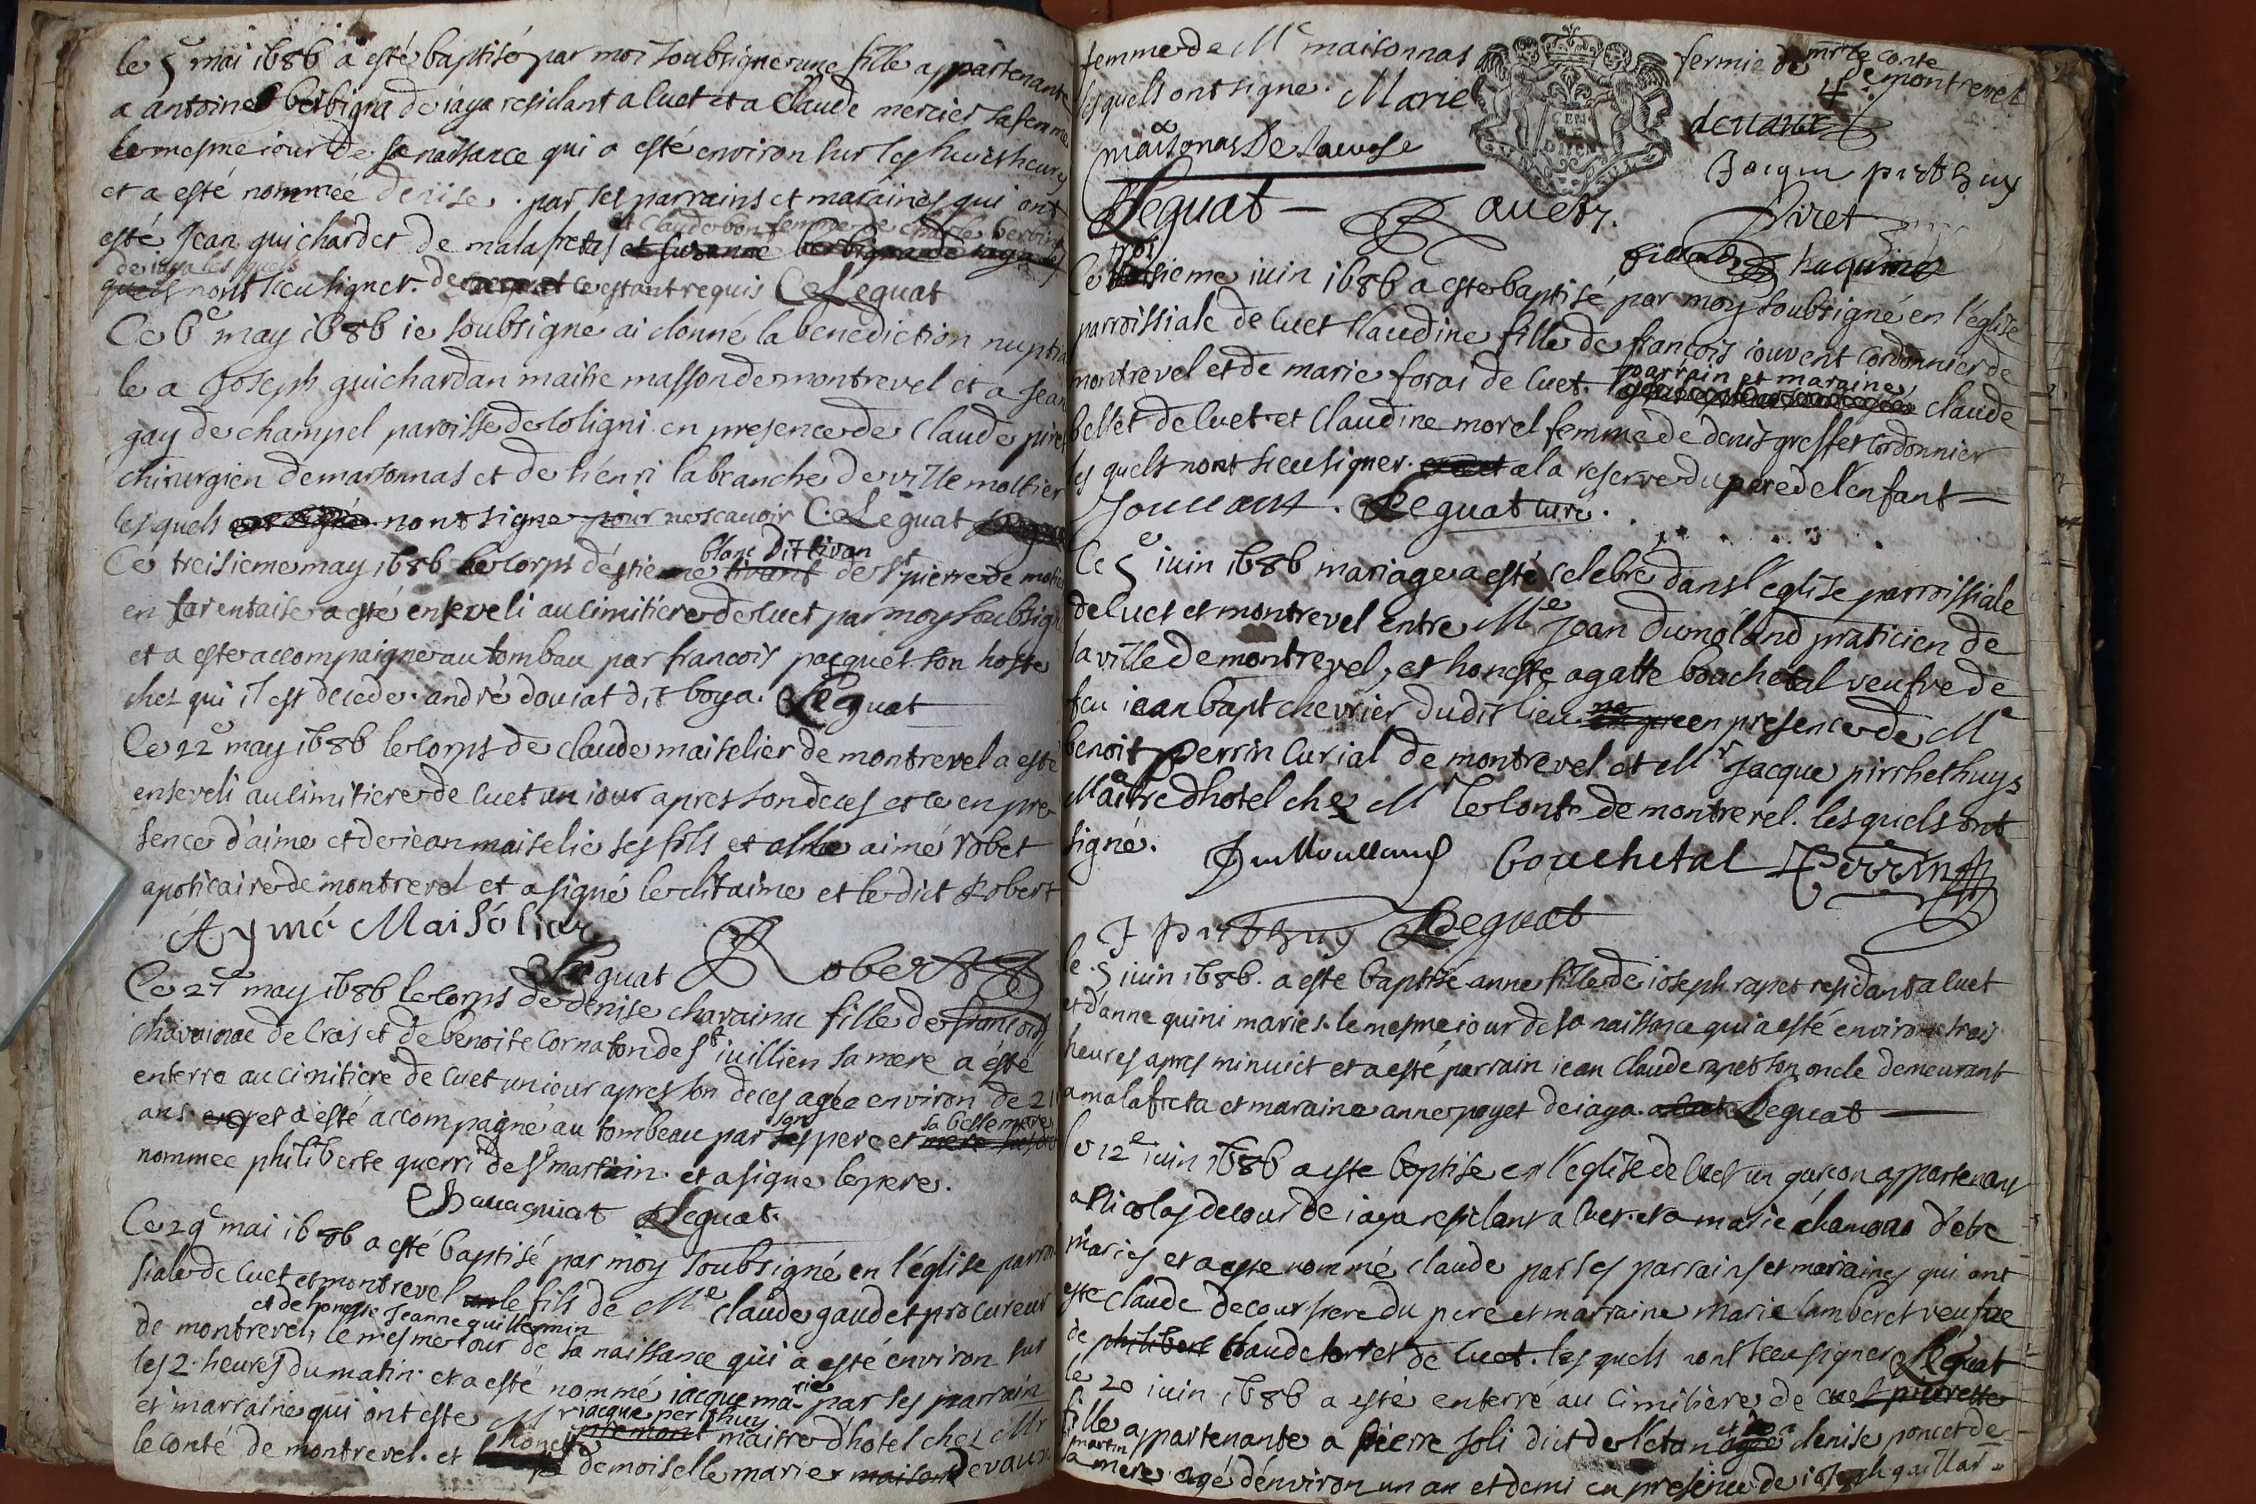 le 5 mai 1686 a esté baptisé par moi soubsigné une fille appartenante
a antoine berbigna de iaya residant a cuet et a Claude mercier sa femme
le mesme iour de sa naissance qui a esté environ sur les huict heures
et a esté nommée denise. par ses parrains et maraines qui ont
et Claude bon femme de
esté Jean guichardet de malafretas et susanne
de iaya les quels
nont sceu signer. de ce estant requis C Leguat
Ce 6e may 1686 ie soubsigné ai donné la benediction nuptia
le a Joseph guichardan maitre masson de montrevel et a Jean
gay de champel paroisse de coligni en presence de Claude piret
chirurgien de marsonnas et de henri la branche de ville mottier
les quels nont signe pour ne scavoir C. Leguat
blanc dit tivan
Ce treisieme may 1686 le corps déstienne tivant de st pierre de
en tarentaise a esté enseveli au cimitiere de cuet par moy soubsigné
et a este accompaigné au tombeau par francois pacquet son hoste
chez qui il est decede. andré douiat dit boya. Leguat
Ce 22e may 1686 le corps de claude maiselier de montrevel a esté
enseveli au cimitiere de cuet un iour apres son deces et ce en pre
sence d'aime et de iean maiselie ses fils et aimé robet
apoticaire de montrevel et a signé le dit aime et le dict Robert
Aymé Maisoliar
Leguat Robert
Ce 27e may 1686 le corps de denise chavainac fille de francois
chavainac de Cras et de benoite cornaton de st iuillien sa mere a ésté
enterré au cimitiere de cuet un iour apres son deces agée environ de 21
son sa belle mere
ans et a esté accompagné au tombeau par pere et mere
nommee philiberte querri de st martin. et a signe le pere.
Chavagniat Leguat.
Ce 29e mai 1686 a esté baptisé par moy soubsigné en l'église parroi
siale de cuet et montrevel le fils de Me claude gaudet procureur
et de honeste Jeanne guillermin
de montrevel, le mesme iour de sa naissance qui a esté environ sur
les 2 heures du matin. et a esté nommé iacque marie par ses parrain
et marraine qui ont este Mr iacque perthuy maitre d'hotel chez Mr
le conté de montrevel. et honeste demoiselle marie devaux
femme de Me maisonnas fermie de mr le conte
de montrevel
lesquels ont signe. Marie devaux
maisonas De Lavose
Jacque pirthuy
Leguat
Gaudet. Piret
huguine
trois
Ce sieme iuin 1686 a este baptisé par moy soubsigné en l'église
parroissiale de cuet Claudine fille de francois iouvent Cordonnier de
parrain et maraine
montrevel et de marie forai de cuet. claude
bellet de cuet et Claudine morel femme de denis gresset cordonnier
les quels nont sceu signer. a la reserve du pere de l'enfant
Jouuant. Leguat curé.
Ce 5e iuin 1686 mariage a esté celebré dans l'eglise parroissiale
de cuet et montrevel entre Me Jean dumoland praticien de
la ville de montrevel, et honeste agatte bouchetal veufve de
feu iean bapt chevrier dudit lieu. en presence de Me
benoit perrin curial de montrevel et Mr Jacque pirrhethuys
Maitre d'hotel chez Mr le Conte de montrevel. lesquels ont
signé. Dumoulland bouchetal Perrin
J pirthuy Leguat
le 5 iuin 1686. a este baptisé anne fille de ioseph rapet residant a cuet
et d'anne quini mariés. le mesme iour de sa naissance qui a esté environ trois
heures apres minuict et a esté parrain iean claude rapet son oncle demeurant
a malafreta et maraine anne poyet de iaya. Leguat
le 12e iuin 1686 a este baptise en l'eglise de cuet un garcon appartenant
a Nicolas decour de iaya residant a cuet. et a marie chamona d'etre
mariés et a este nommé claude par ses parrains et maraines qui ont
este claude decour frere du pere et marraine Marie lamberet veufve
de philibert Claude de cuet. les quels nont sceu signer Leguat
le 20 iuin 1686 a esté enterré au cimitiere de cuet pierrette
fille appartenante a pierre joli dict de letan et a denise poncet de
st martin
sa mere. agé d'environ un an et demi en presence de ioseph gaillar